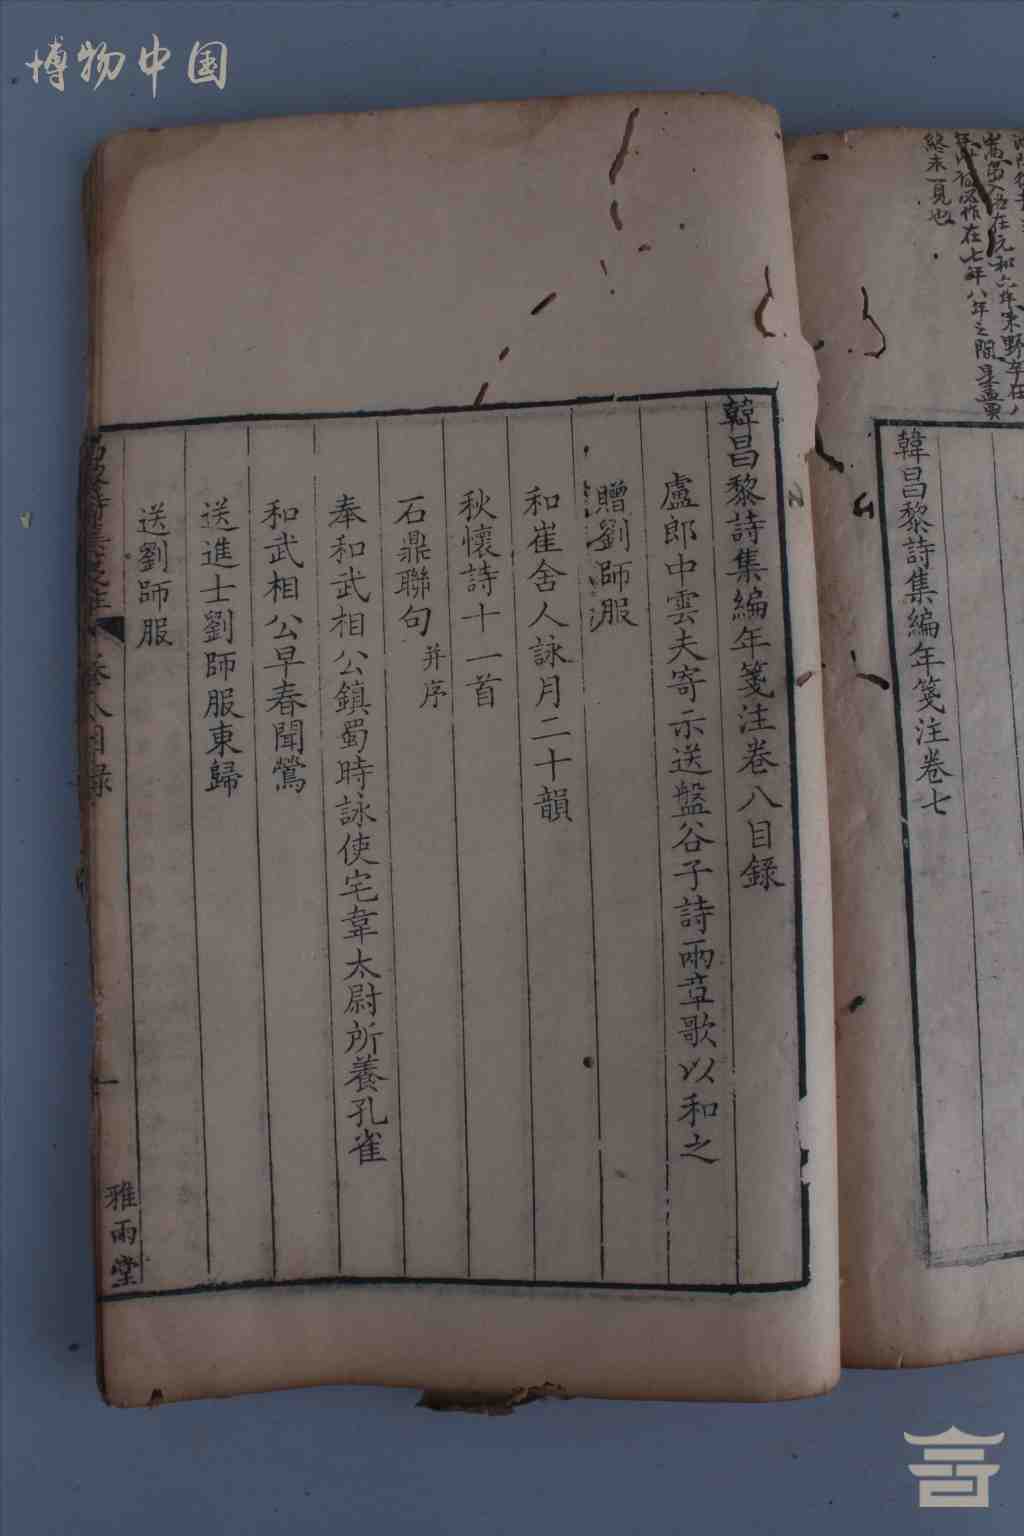 博物中国
終未一見也
韓昌黎詩集編年箋注卷七
韓昌黎詩集編年箋注卷八目錄
盧郎中雲夫寄示送盤谷子詩兩章歌以和之
贈劉師服
和崔舍人詠月二十韻
秋懷詩十一首
石鼎聯句并序
奉和武相公鎮蜀時詠使宅韋太尉所養孔雀
和武相公早春聞鶯
送進士劉師服東歸
送劉師服
雅雨堂